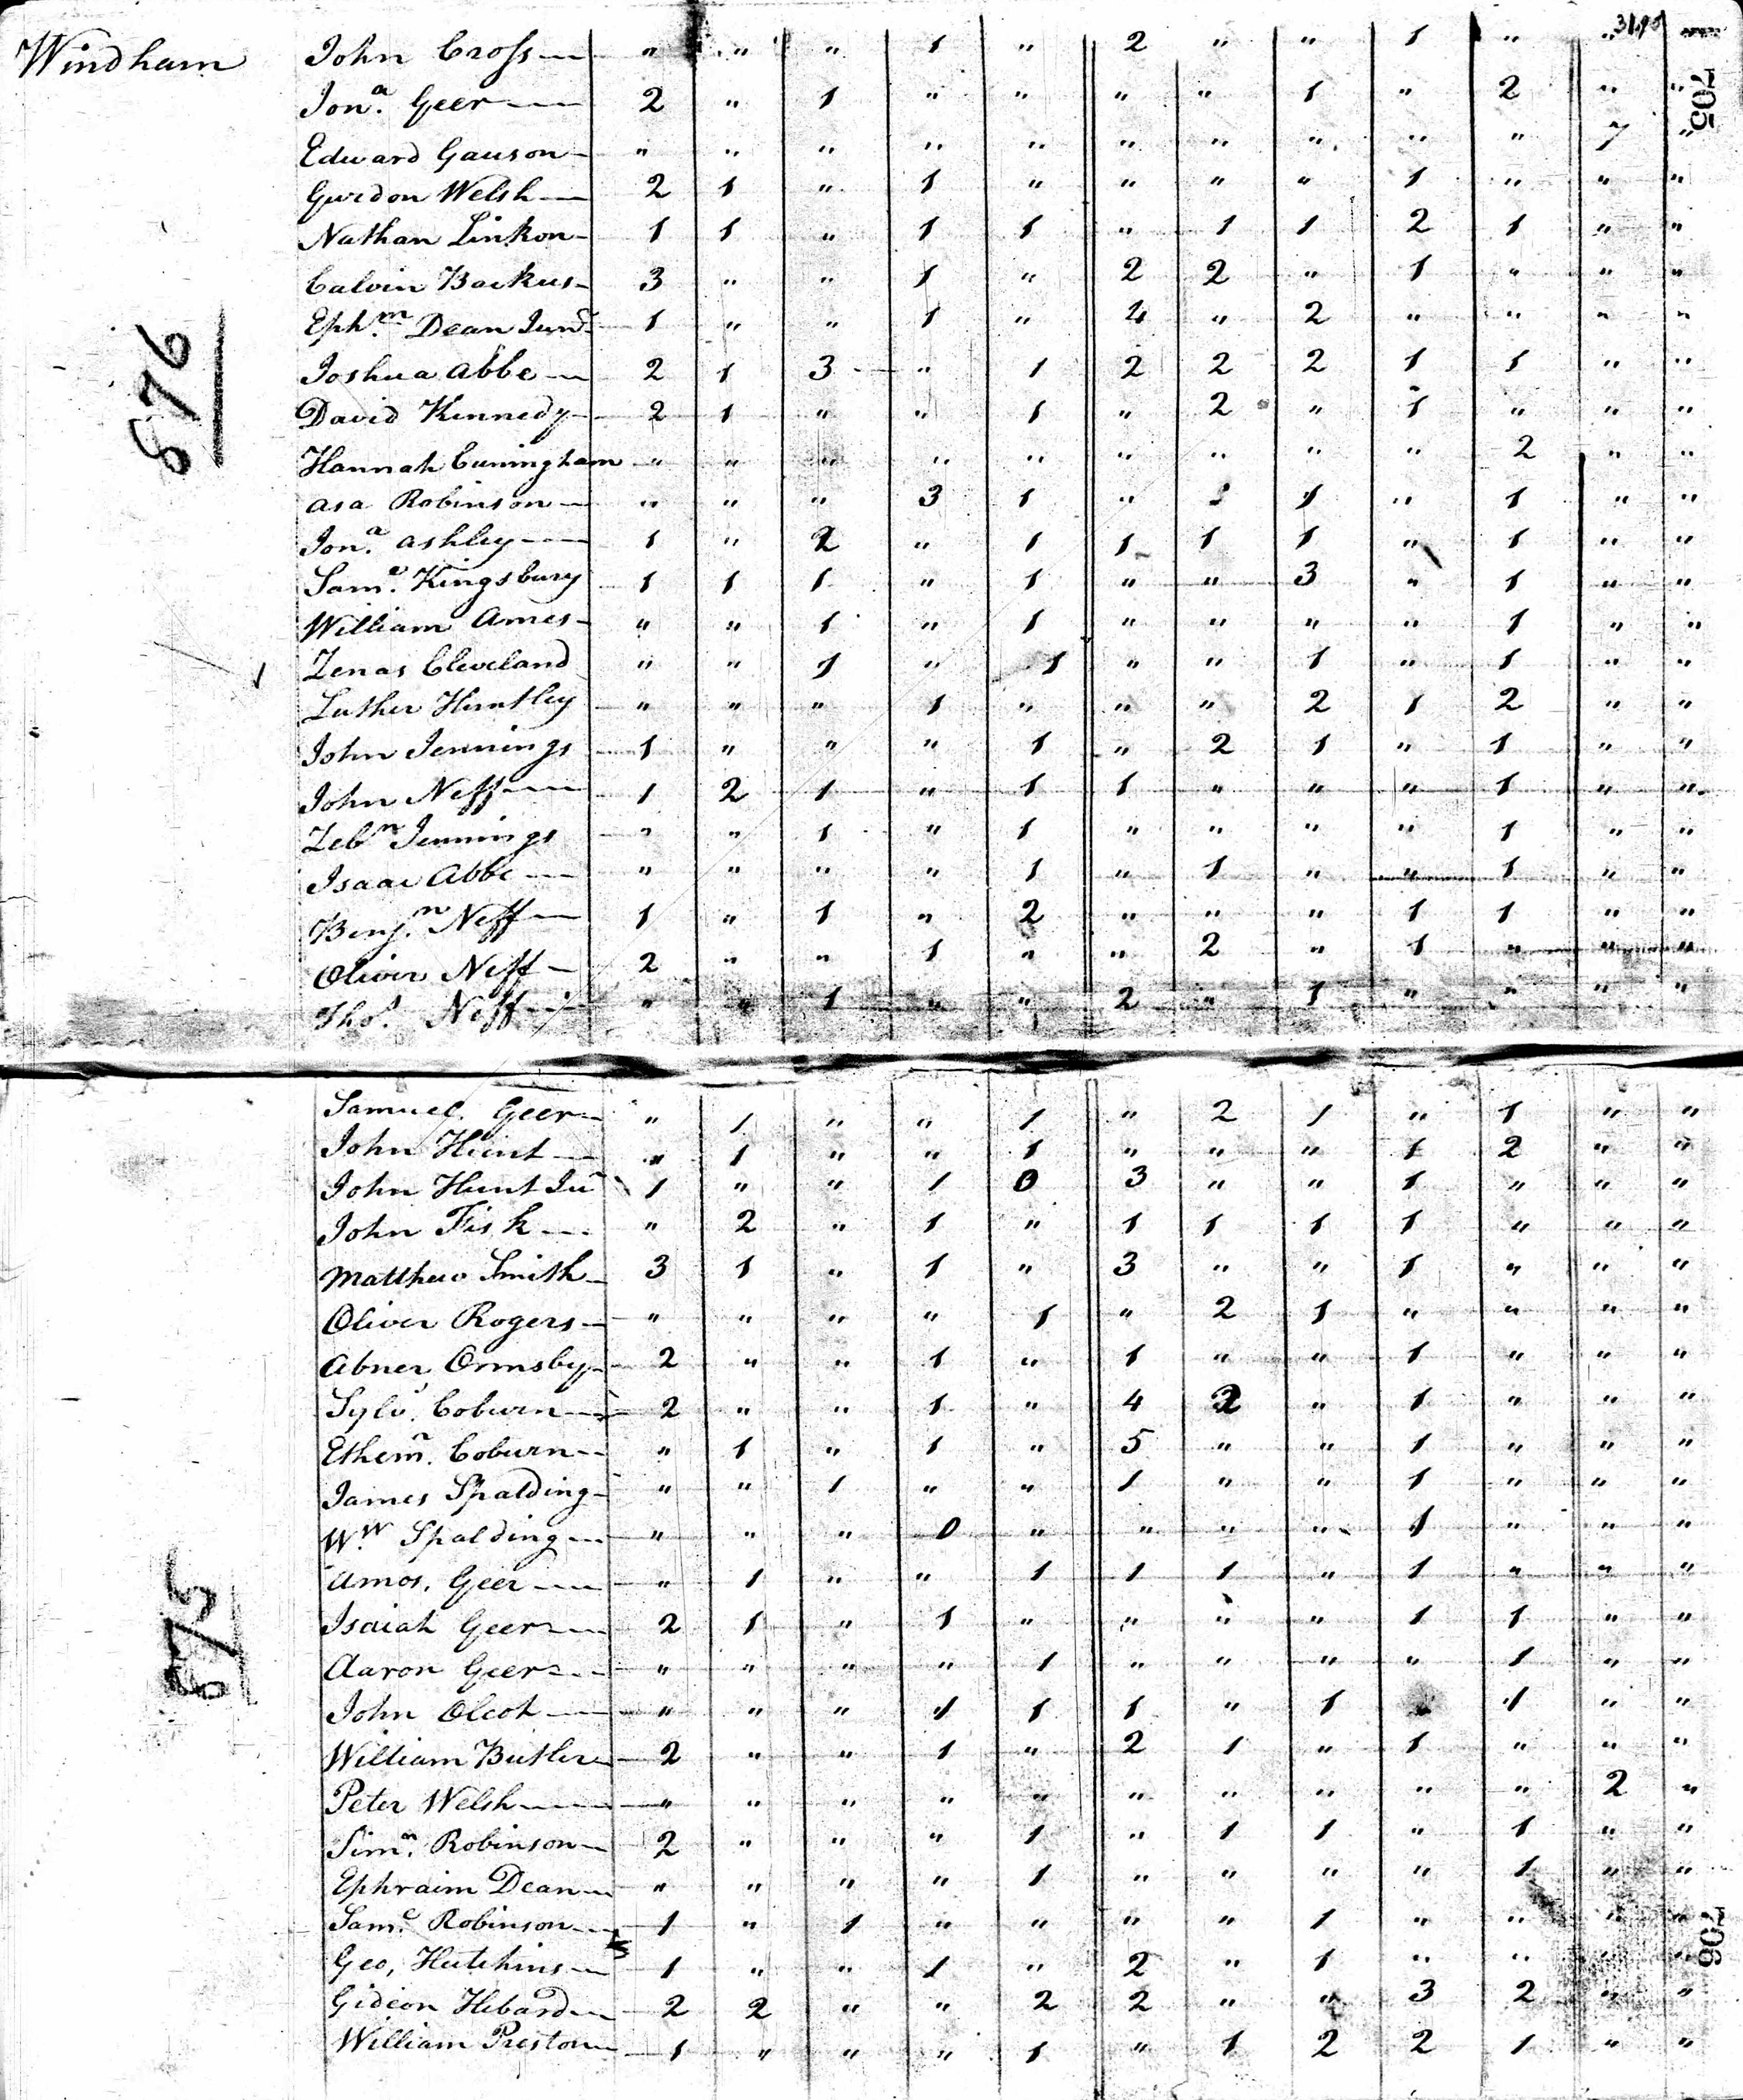 Windham John Cross " " " 1 " 2 " " 1 " "
Jonª. Geer 2 " 1 " " " " 1 " 2 " "
Edward Gauson " " " " " " " " " " 7 "
Gurdon Welsh 2 1 " 1 " " " " 1 " " "
Nathan Linkon 1 1 " 1 1 " 1 1 2 1 " "
Calvin Backus 3 " " 1 " 2 2 " 1 " " "
Ephᵐ. Dean Junʳ 1 " " 1 " 4 " 2 " " " "
Joshua Abbe 2 1 3 " 1 2 2 2 1 1 " "
David Kennedy 2 1 " " 1 " 2 " 1 " " "
Hannah Cuningham " " " " " " " " " 2 " "
Asa Robinson " " " 3 1 " 1 " 1 " "
Jonª. Ashley 1 " 2 " 1 1 1 1 " 1 " "
Samˡ. Kingsbury 1 1 1 " 1 " " 3 " 1 " "
William Ames " " 1 " 1 " " " " 1 " "
Zenas Cleveland " " 1 " 1 " " 1 " 1 " "
Luther Huntley " " " 1 " " " 2 1 2 " "
John Jennings 1 " " " 1 " 2 1 " 1 " "
John Neff 1 2 1 " 1 1 " " " 1 " "
Zebⁿ Jennings " " 1 " 1 " " " " 1 " "
Isaac Abbe " " " " 1 " 1 " " 1 " "
Benjⁿ. Neff 1 " 1 " 2 " " " 1 1 " "
Oliver Neff 2 " " 1 " " 2 " 1 " " "
Thoˢ. Neff " " 1 " " 2 " 1 " " " "
705
876
Samuel Geer " 1 " " 1 " 2 1 " 1 " "
John Hunt " 1 " " 1 " " " 1 2 " "
John Hunt Ju 1 " " 1 0 3 " " 1 " " "
John Fisk " 2 " 1 " 1 1 1 1 " " "
Matthew Smith 3 1 " 1 " 3 " " 1 " " "
Oliver Rogers " " " " 1 " 2 1 " " " "
Abner Ormsby 2 " " 1 " 1 " " 1 " " "
Sylvˢ. Coburn 2 " " 1 " 4 2 " 1 " " "
Ethemʳ. Coburn " 1 " 1 " 5 " " 1 " " "
James Spalding " " 1 " " 1 " " 1 " " "
Wᵐ Spalding " " " 0 " " " " 1 " " "
Amos, Geer " 1 " " 1 1 1 " 1 " " "
Isaiah Geer 2 1 " 1 " " " " 1 1 " "
Aaron Geer " " " " 1 " " " " 1 " "
John Olcot " " " 1 1 1 " 1 " 1 " "
William Butler 2 " " 1 " 2 1 " 1 " " "
Peter Welsh " " " " " " " " " " 2 "
Simⁿ. Robinson 2 " " " 1 " 1 1 " 1 " "
Ephraim Dean " " " " 1 " " " " 1 " "
Samˡ. Robinson 1 " 1 " " " " 1 " " " "
Geo, Hutchins 1 " " 1 " 2 " 1 " " " "
Gideon Hebard 2 2 " " 2 2 " " 3 2 " "
William Preston 1 " " " 1 " 1 2 2 1 " "
875
706